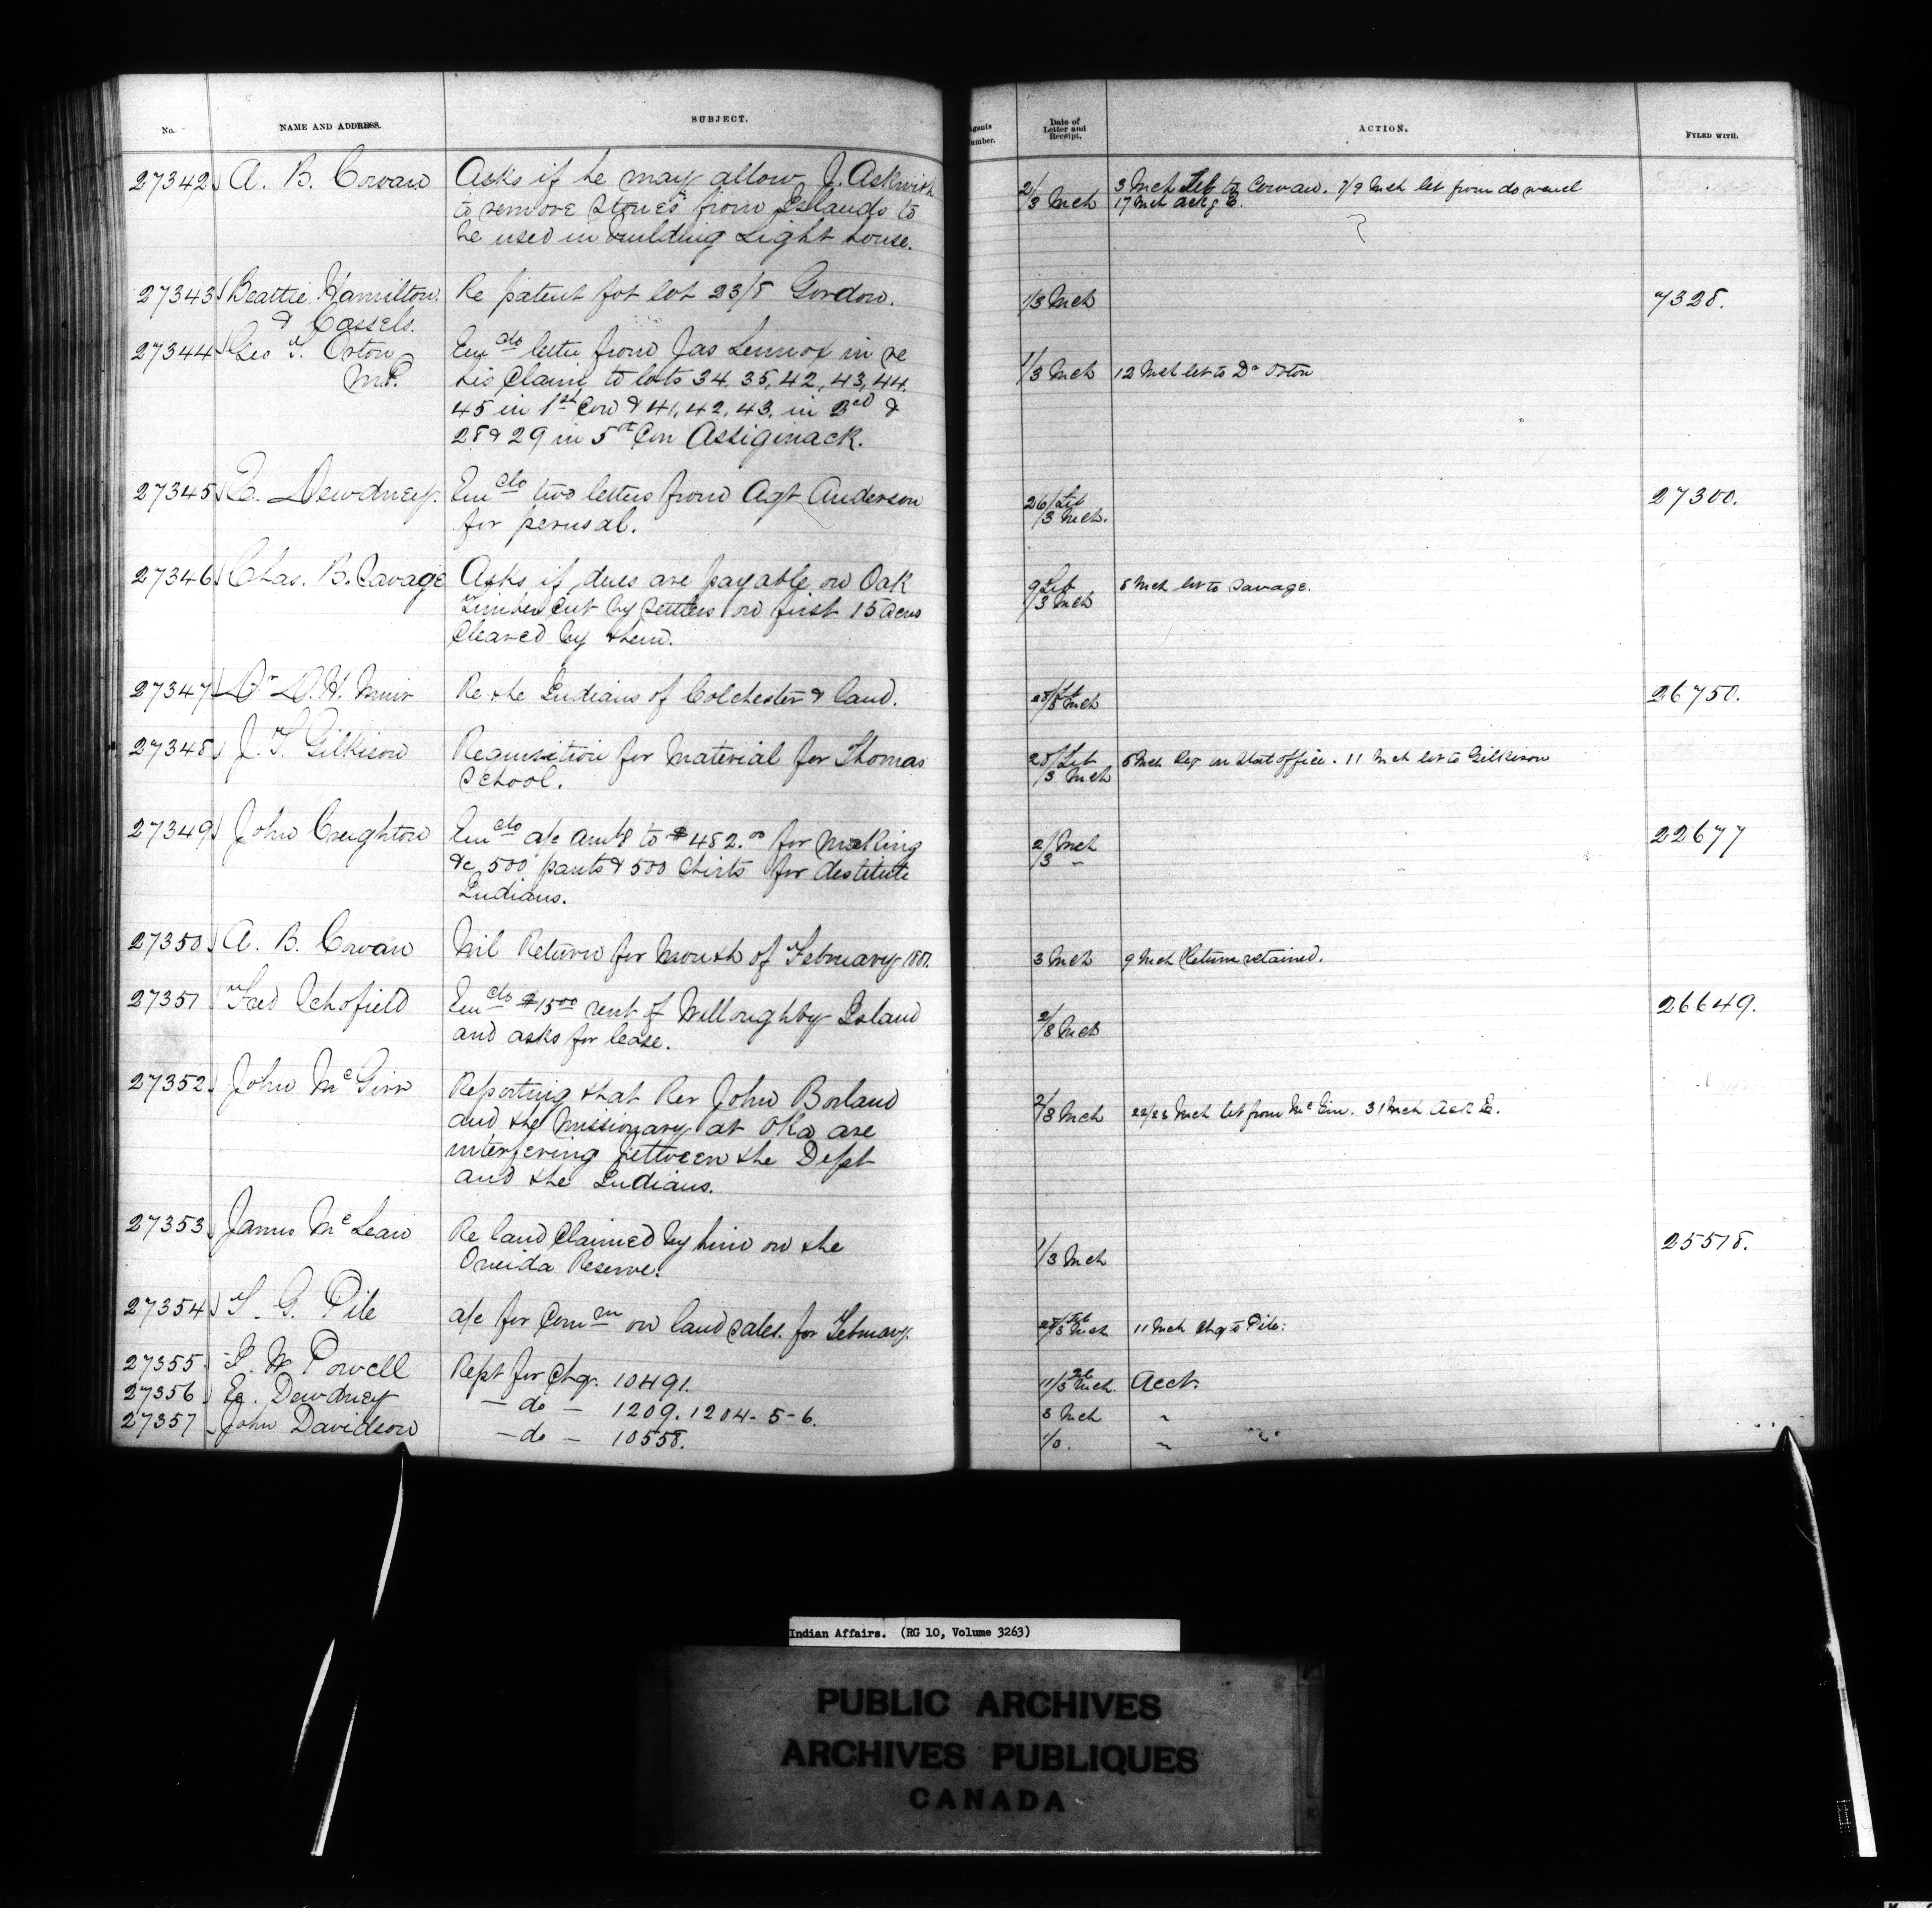 No.
NAME AND ADDRESS.
SUBJECT.
Agents Number.
Date of Letter and Receipt.
ACTION.
FYLED WITH.
27342 A. B. Cowan Asks if he may allow J. Askwith 2/ 3 Mch Let to Cowan. 7/9 Mch let from do
to remove stones from Islands to 3 Mch 17 Mch ackg E.
be used in building Light house.
27343 Beattie Hamilton Re patent for lot 23/8 Gordon. 1/3 Mch 7328.
& Cassels.
27344 Geo T. Orton Encdo letter from Jas Lennox in re 1/3 Mch 12 Mch let to Dr Orton
M.P. his claim to lots 34, 35, 42, 43, 44.
45 in 1st Con & 41, 42, 43, in 2nd &
28 & 29 in 5th Con Assiginack.
27345 E. Dewdney. Encdo two letters from Agt Anderson 26/Feb 27300.
for perusal. /3 Mch.
27346 Chas. B. Savage Asks if dues are payable on Oak 9 Feb 8 Mch let to Savage.
Timber cut by settlers on first 15 acres /3 Mch
cleared by them.
27347 Dr D. H. Muir Re the Indians of Colchester & land. 28/Feb 3 Mch 26750.
27348 J. T. Gilkison Requisition for Material for Thomas 28/Feb 8 Mch Req on Stat office. 11 Mch let to Gilkison
School. /3 Mch
27349 John Creighton Encdo a/c amtg to $482.00 for making 2/Mch 22677
&c 500 pants & 500 shirts for destitute /3 "
Indians.
27350 A. B. Cowan Nil Return for month of February 1881. 3 Mch 9 Mch Return retained.
27351 Fred Schofield Encdo $15 00 rent of Willoughby Island 2/3 Mch 26649.
and asks for lease.
27352 John McGirr Reporting that Rev John Borland 2/3 Mch 22/23 Mch let from McGirr. 31 Mch Ack E.
and the Missionary at Oka are
interfering between the Dept
and the Indians.
27353 James McLean Re land claimed by him on the 1/3 Mch 25518.
Oneida Reserve.
27354 T. G. Pile a/c for Comn on land sales for February. 28/Feb 3 Mch 11 Mch Chq to Pile.
27355 I. W Powell Rept for Chq. 10491. 11/Feb 3 Mch. Acct.
27356 E. Dewdney — do — 1209. 1204-5-6. 3 Mch "
27357 John Davidson — do — 10558. 1/3. "
Indian Affairs. (RG 10, Volume 3263)
PUBLIC ARCHIVES
ARCHIVES PUBLIQUES
CANADA